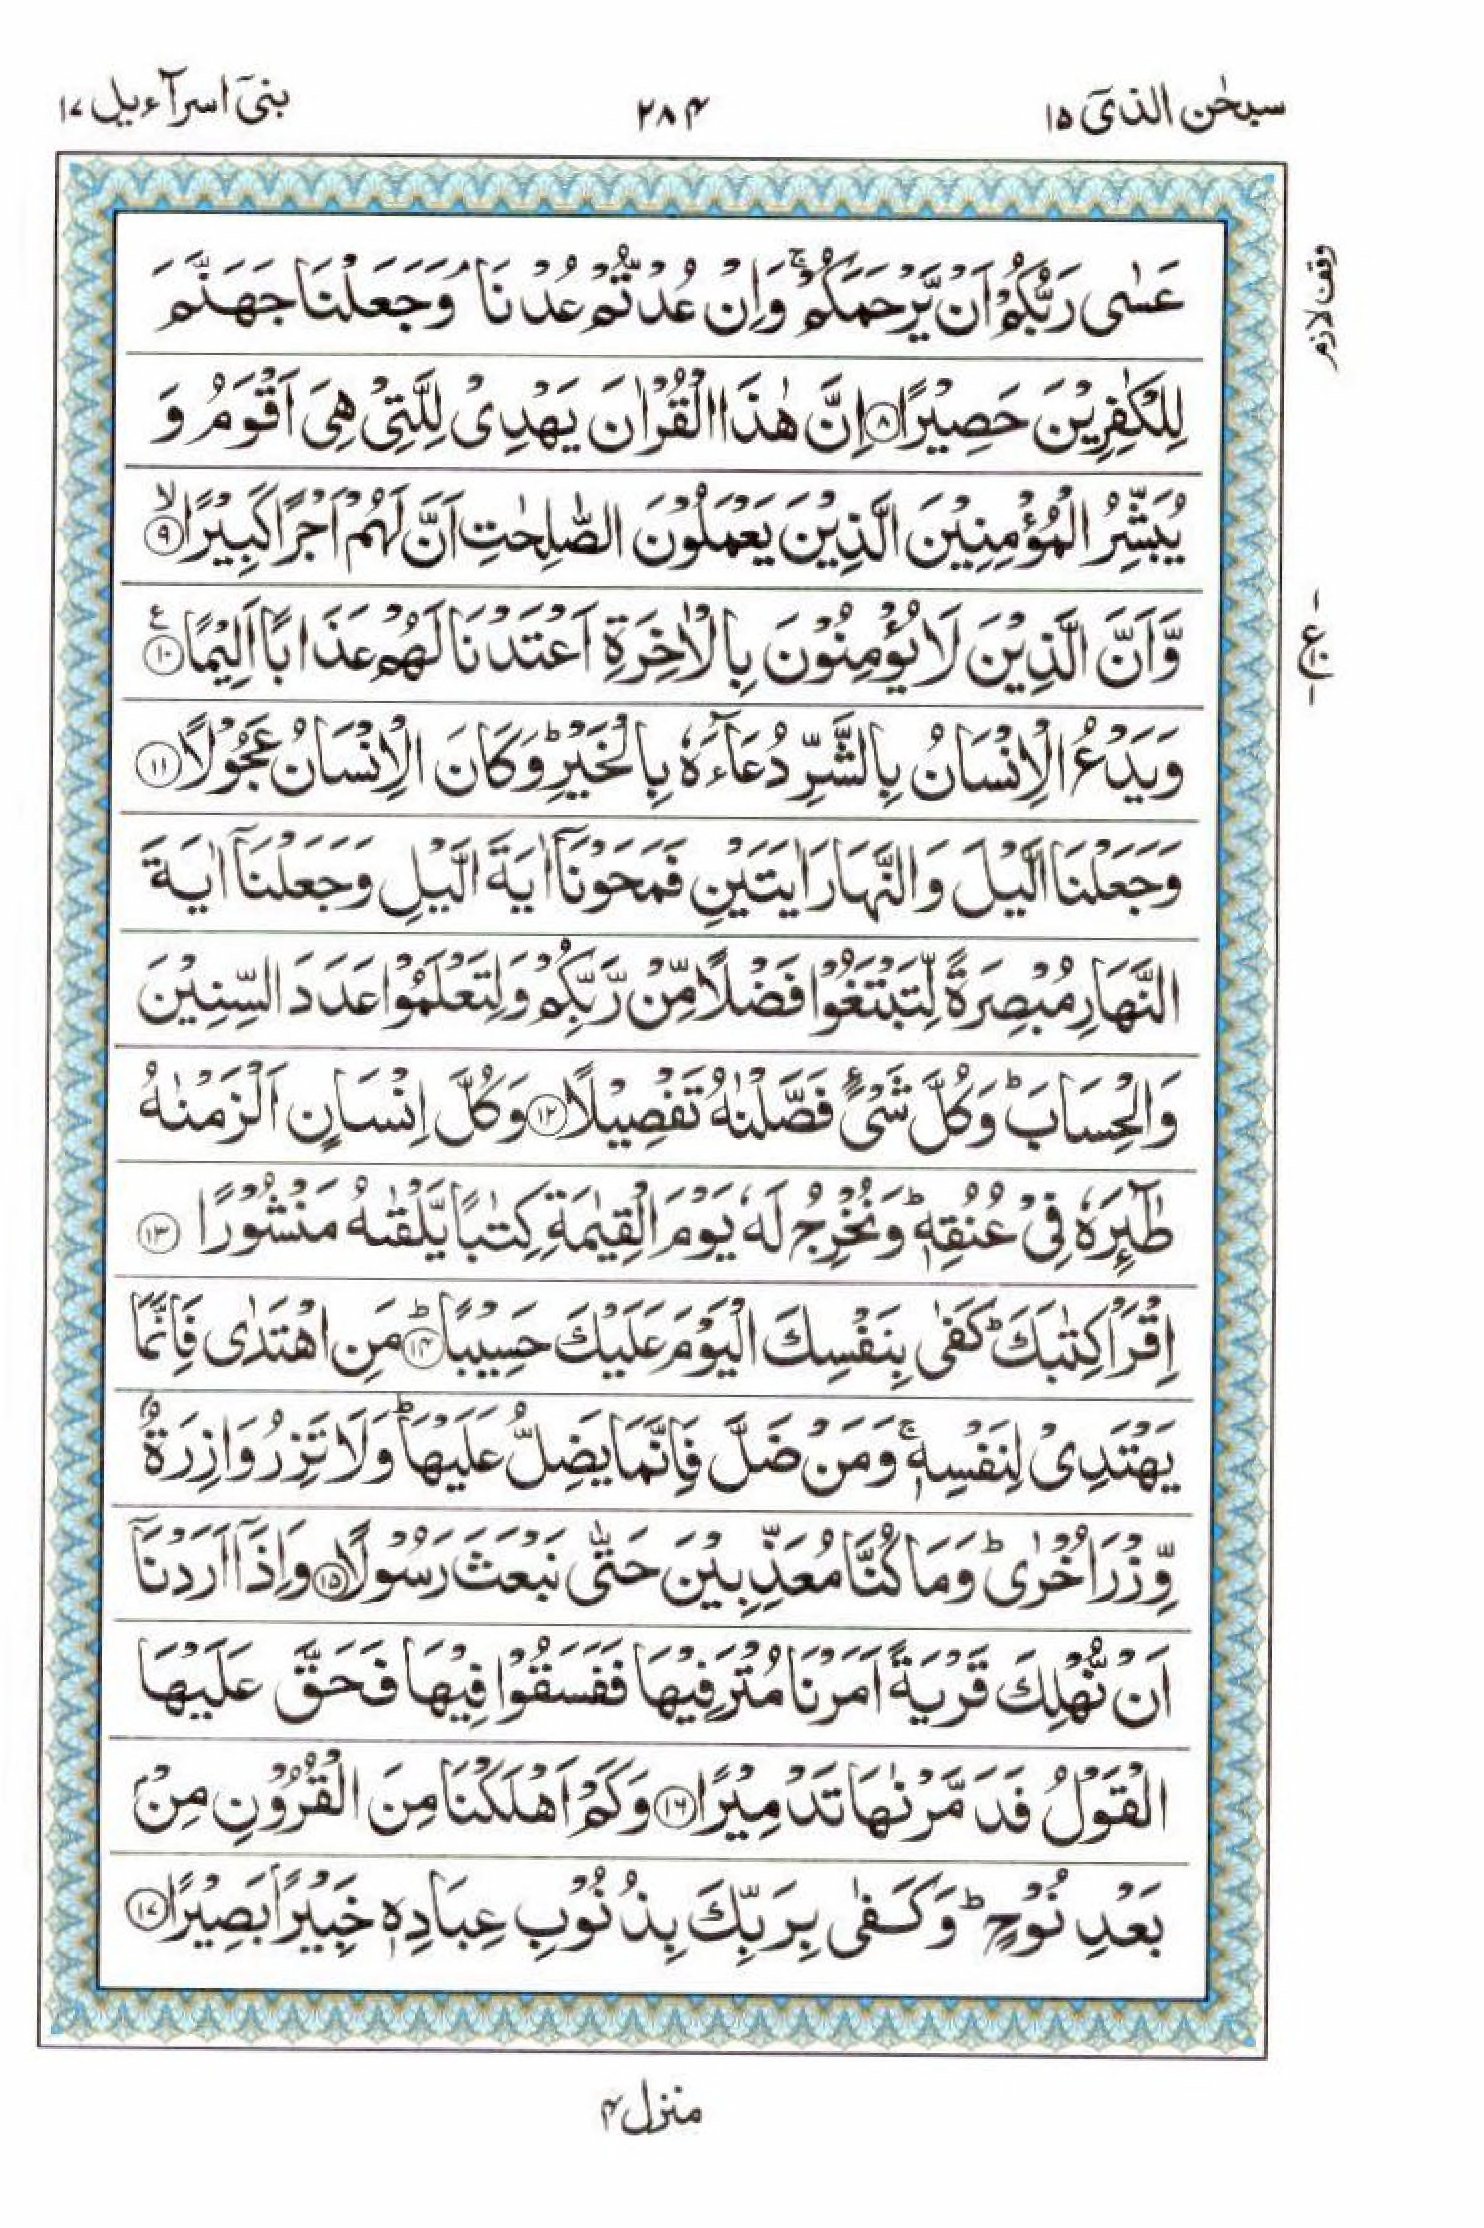 سبحٰن الذیٓ ۱۵
۲۸۴
بنیٓ اسرآءیل ۱۷
عَسٰی رَبُّكُمْ اَنْ یَّرْحَمَكُمْ ۚ وَاِنْ عُدْتُّمْ عُدْنَا ۘ وَجَعَلْنَا جَهَنَّمَ
وقف لازم
لِلْكٰفِرِیْنَ حَصِیْرًا ۝۸ اِنَّ هٰذَا الْقُرْاٰنَ یَهْدِیْ لِلَّتِیْ هِیَ اَقْوَمُ وَ
یُبَشِّرُ الْمُؤْمِنِیْنَ الَّذِیْنَ یَعْمَلُوْنَ الصّٰلِحٰتِ اَنَّ لَهُمْ اَجْرًا كَبِیْرًا ۝۹ۙ
وَّاَنَّ الَّذِیْنَ لَا یُؤْمِنُوْنَ بِالْاٰخِرَةِ اَعْتَدْنَا لَهُمْ عَذَابًا اَلِیْمًا ۝۱۰ ع
ع
وَیَدْعُ الْاِنْسَانُ بِالشَّرِّ دُعَآءَهٗ بِالْخَیْرِ ؕ وَكَانَ الْاِنْسَانُ عَجُوْلًا ۝۱۱
وَجَعَلْنَا الَّیْلَ وَالنَّهَارَ اٰیَتَیْنِ فَمَحَوْنَاۤ اٰیَةَ الَّیْلِ وَجَعَلْنَاۤ اٰیَةَ
النَّهَارِ مُبْصِرَةً لِّتَبْتَغُوْا فَضْلًا مِّنْ رَّبِّكُمْ وَلِتَعْلَمُوْا عَدَدَ السِّنِیْنَ
وَالْحِسَابَ ؕ وَكُلَّ شَیْءٍ فَصَّلْنٰهُ تَفْصِیْلًا ۝۱۲ وَكُلَّ اِنْسَانٍ اَلْزَمْنٰهُ
طٰٓئِرَهٗ فِیْ عُنُقِهٖ ؕ وَنُخْرِجُ لَهٗ یَوْمَ الْقِیٰمَةِ كِتٰبًا یَّلْقٰىهُ مَنْشُوْرًا ۝۱۳
اِقْرَاْ كِتٰبَكَ ؕ كَفٰی بِنَفْسِكَ الْیَوْمَ عَلَیْكَ حَسِیْبًا ۝۱۴ؕ مَنِ اهْتَدٰی فَاِنَّمَا
یَهْتَدِیْ لِنَفْسِهٖ ۚ وَمَنْ ضَلَّ فَاِنَّمَا یَضِلُّ عَلَیْهَا ؕ وَلَا تَزِرُ وَازِرَةٌ
وِّزْرَ اُخْرٰی ؕ وَمَا كُنَّا مُعَذِّبِیْنَ حَتّٰی نَبْعَثَ رَسُوْلًا ۝۱۵ وَاِذَاۤ اَرَدْنَاۤ
اَنْ نُّهْلِكَ قَرْیَةً اَمَرْنَا مُتْرَفِیْهَا فَفَسَقُوْا فِیْهَا فَحَقَّ عَلَیْهَا
الْقَوْلُ فَدَمَّرْنٰهَا تَدْمِیْرًا ۝۱۶ وَكَمْ اَهْلَكْنَا مِنَ الْقُرُوْنِ مِنْۢ
بَعْدِ نُوْحٍ ؕ وَكَفٰی بِرَبِّكَ بِذُنُوْبِ عِبَادِهٖ خَبِیْرًۢا بَصِیْرًا ۝۱۷
منزل ۴